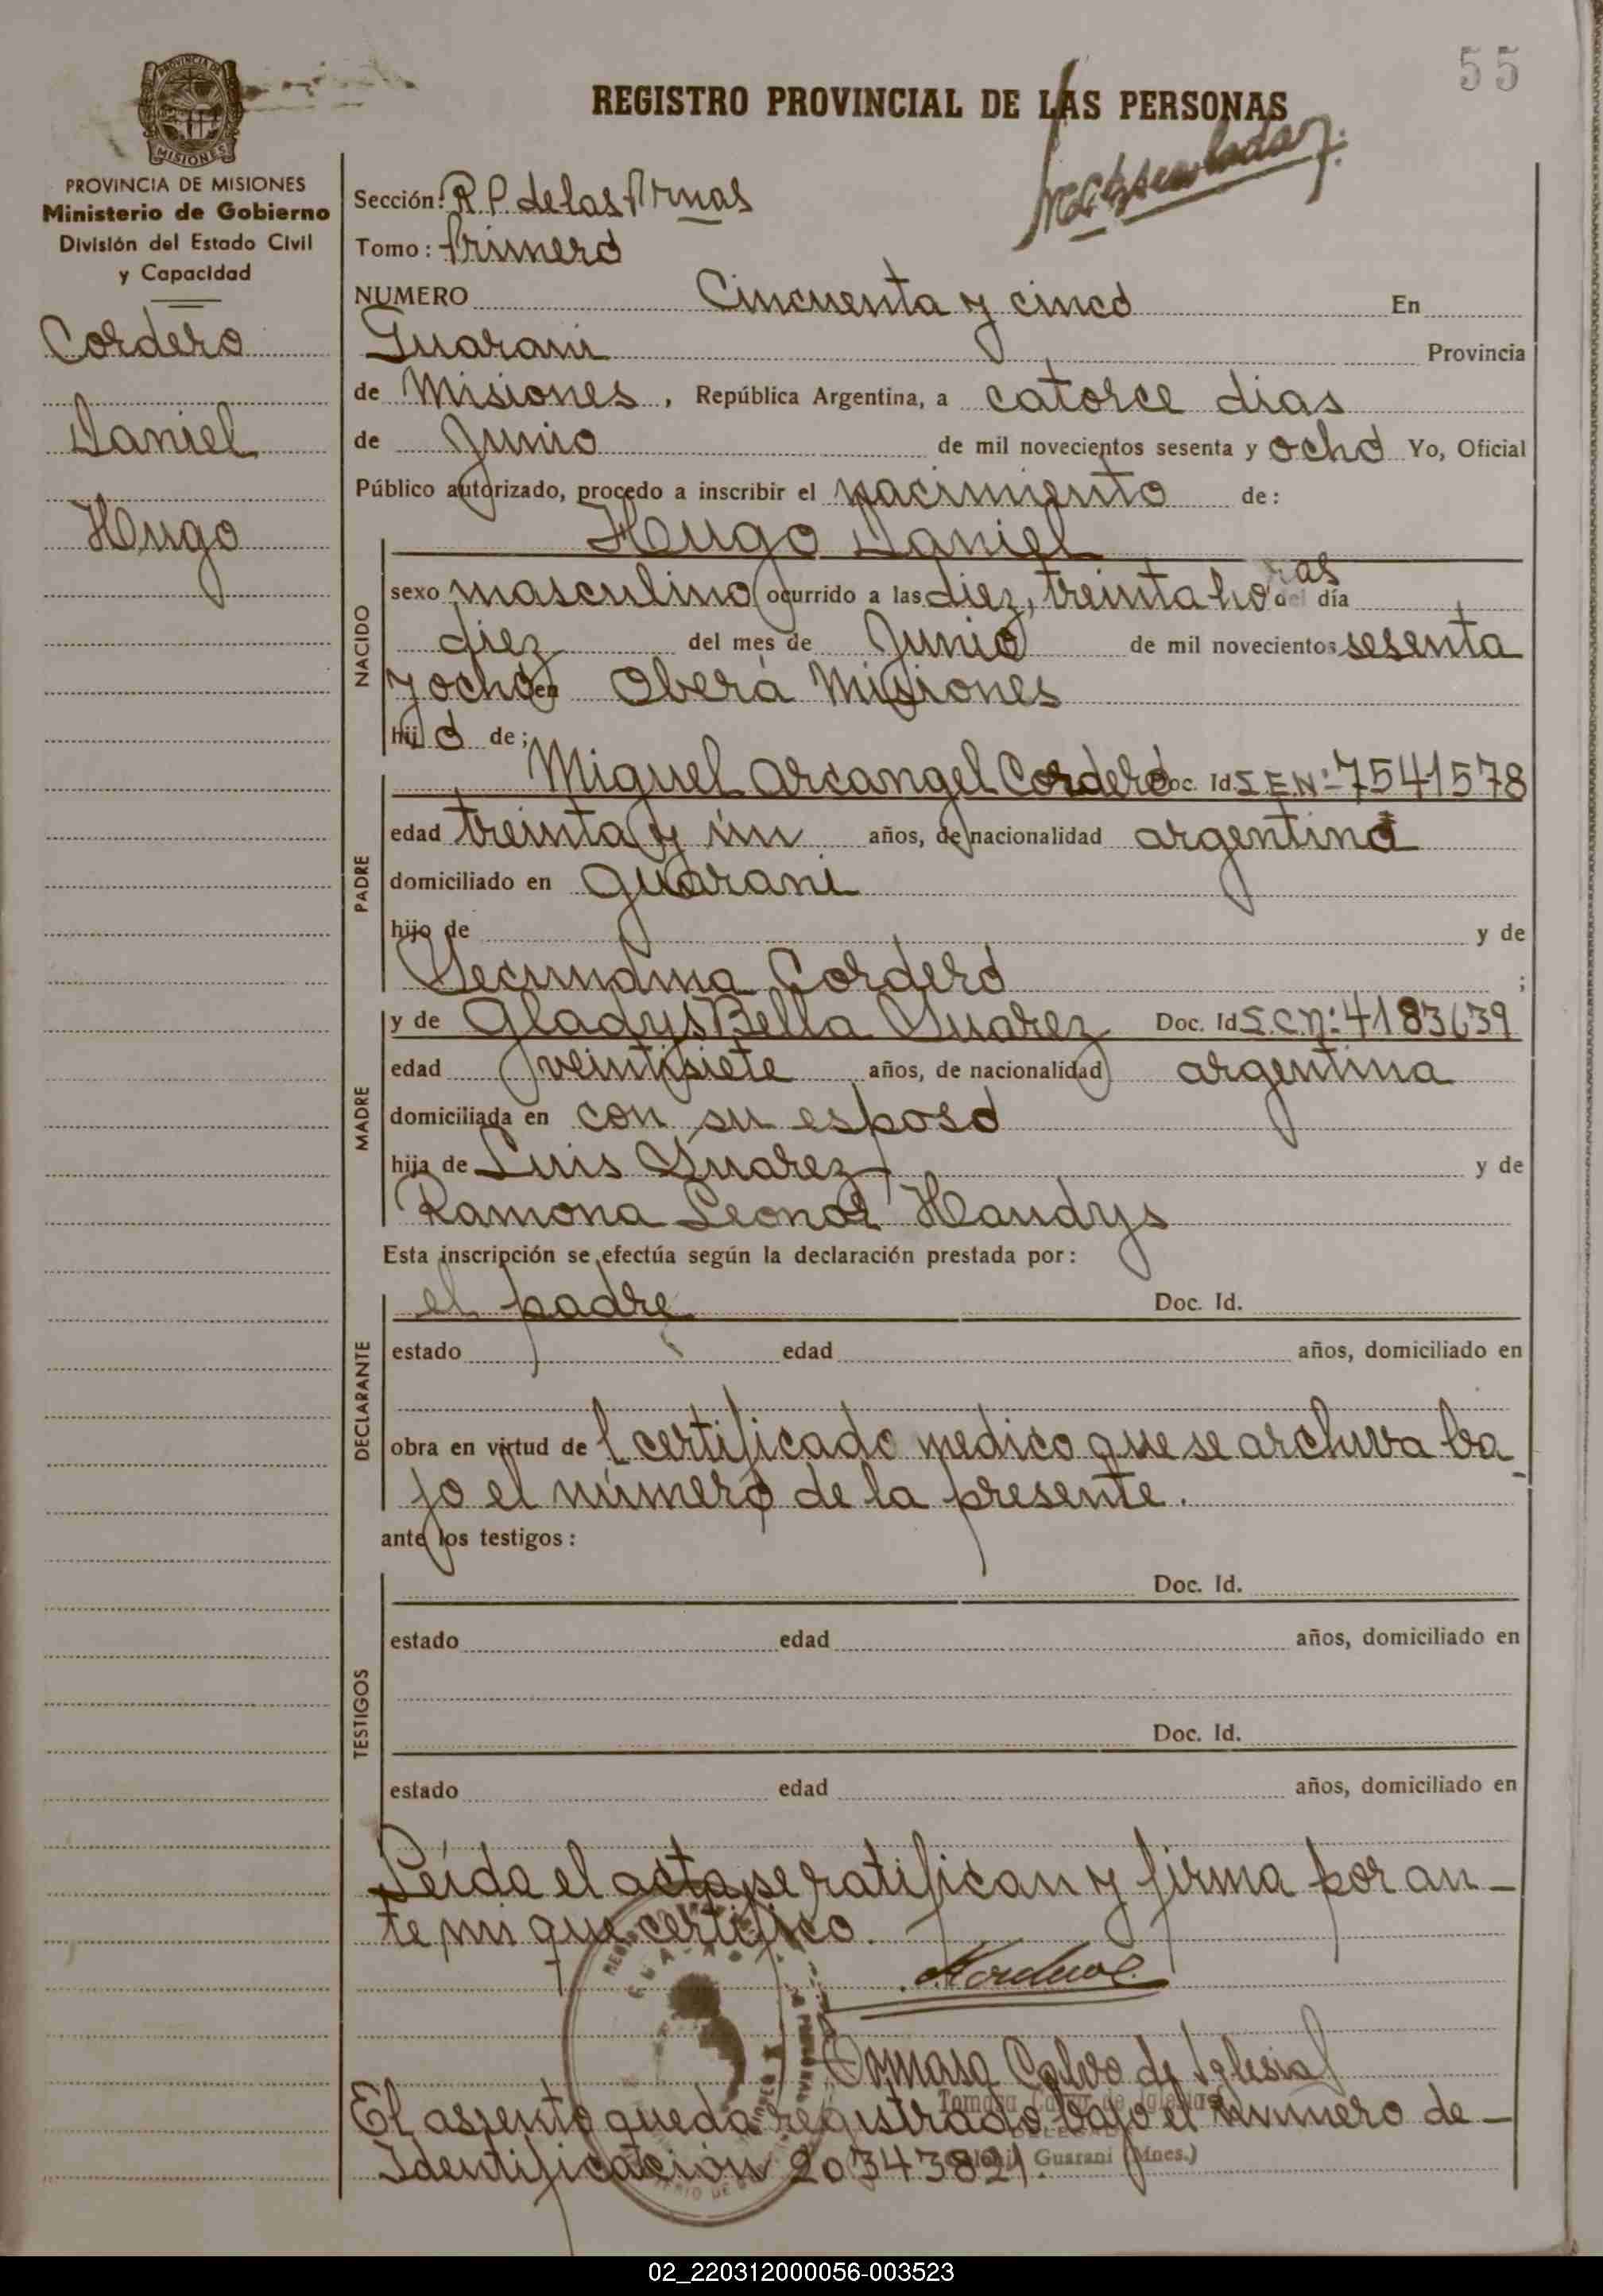 55
PROVINCIA DE
MISIONES
REGISTRO PROVINCIAL DE LAS PERSONAS
PROVINCIA DE MISIONES
Ministerio de Gobierno
División del Estado Civil
y Capacidad
Cordero
Daniel
Hugo
Sección: R.P. de las Prnas
Tomo: Primero
NUMERO Cincuenta y cinco En
Guarani Provincia
de Misiones, República Argentina, a catorce dias
de Junio de mil novecientos sesenta y ocho Yo, Oficial
Público autorizado, procedo a inscribir el nacimiento de:
Hugo Daniel
NACIDO
sexo masculino ocurrido a las diez, treinta horas del día
diez del mes de Junio de mil novecientos sesenta
y ocho en Oberá Misiones
hijo de;
Miguel Arcangel Cordero Doc. Id. I.E.Nº 7541578
PADRE
edad treinta y ún años, de nacionalidad argentino
domiciliado en Guarani
hijo de y de
Secundina Cordero ;
y de Gladys Bella Suarez Doc. Id L.C.Nº 4183639
MADRE
edad veintisiete años, de nacionalidad argentina
domiciliada en con su esposo
hija de Luis Suarez y de
Ramona Leonor Haudys
Esta inscripción se efectúa según la declaración prestada por:
el padre Doc. Id.
DECLARANTE
estado edad años, domiciliado en
obra en virtud de l certificado medico que se archiva ba-
jo el número de la presente.
ante los testigos:
Doc. Id.
TESTIGOS
estado edad años, domiciliado en
Doc. Id.
estado edad años, domiciliado en
Leída el acta se ratifican y firma por an-
te mi que certifico.
Tomasa Calvo de Iglesias
Tomasa Calvo de Iglesias
El asiento queda registrado bajo el número de-
DELEGADA
Identificación 20343821.
Guarani (Mnes.)
02_220312000056-003523